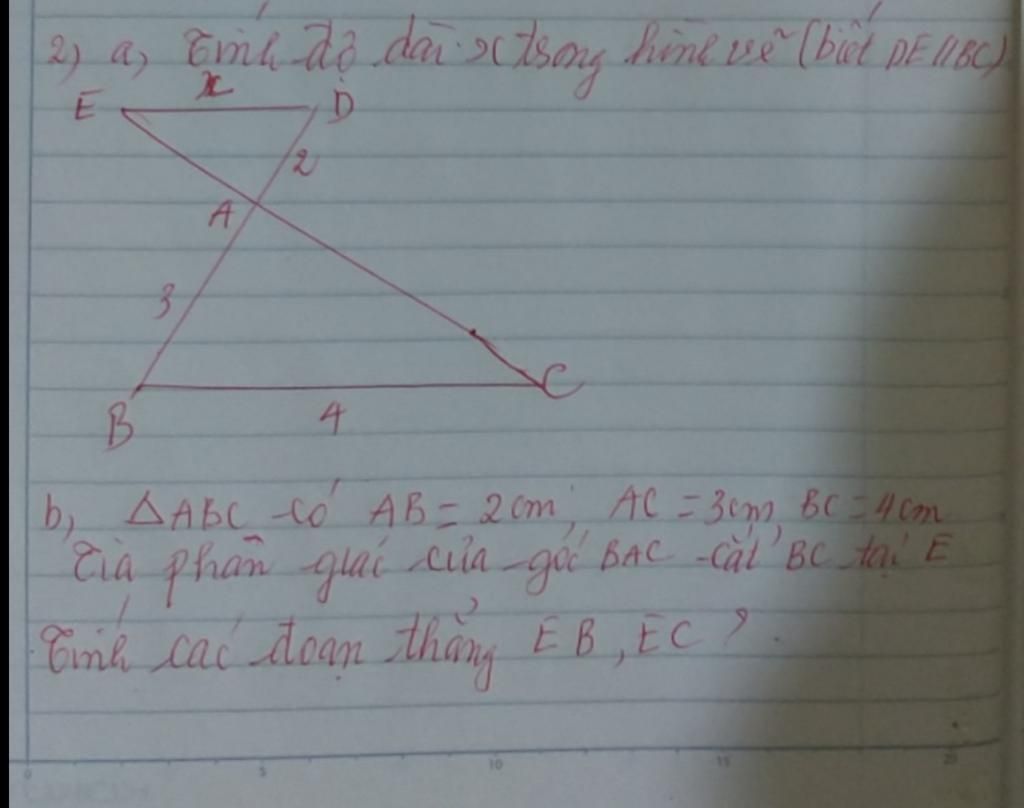 2) a, Tính độ dài x trong hình vẽ (biết DE//BC)
E x D
2
A
3
B 4 C
b, ΔABC có AB = 2cm; AC = 3cm, BC = 4cm
Tia phân giác của góc BAC cắt BC tại E
Tính các đoạn thẳng EB, EC ?.
0 5 10 15 20